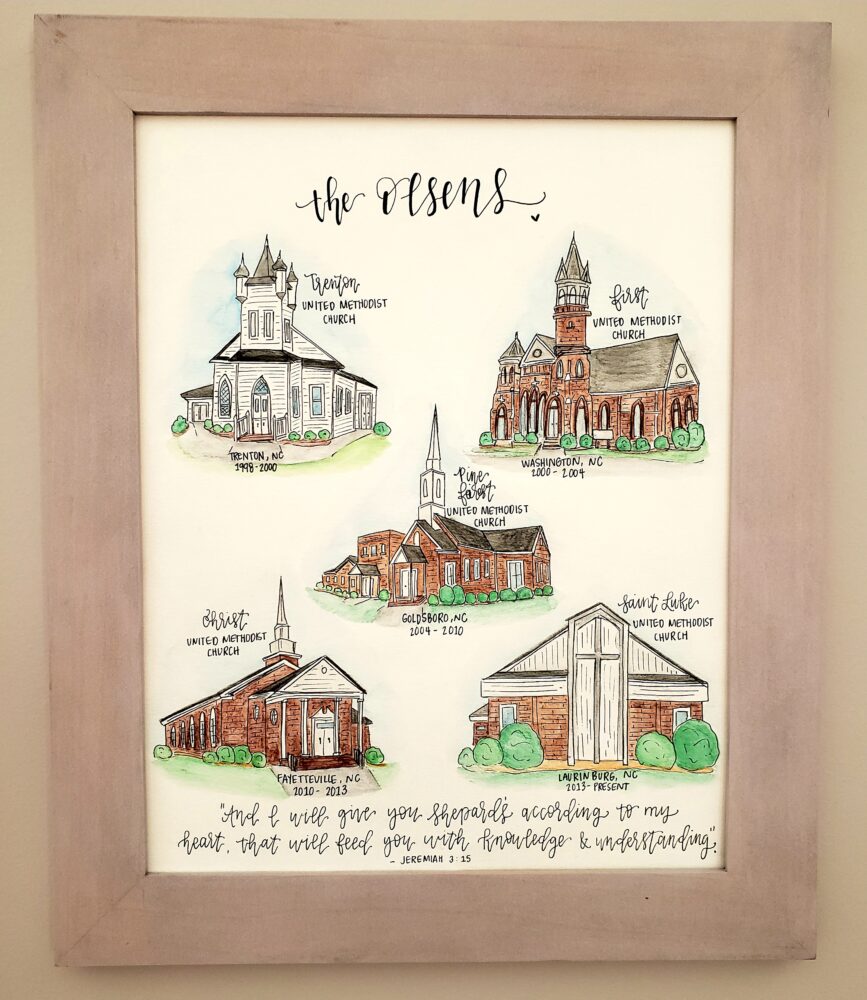 the Olsens
Trenton
UNITED METHODIST
CHURCH
TRENTON, NC
1998-2000
first
UNITED METHODIST
CHURCH
WASHINGTON, NC
2000 - 2004
Pine
forest
UNITED METHODIST
CHURCH
GOLDSBORO, NC
2004 - 2010
Christ
UNITED METHODIST
CHURCH
FAYETTEVILLE, NC
2010 - 2013
Saint Luke
UNITED METHODIST
CHURCH
LAURINBURG, NC
2013-PRESENT
"And I will give you shepard's according to my
heart, that will feed you with knowledge & understanding".
- JEREMIAH 3:15